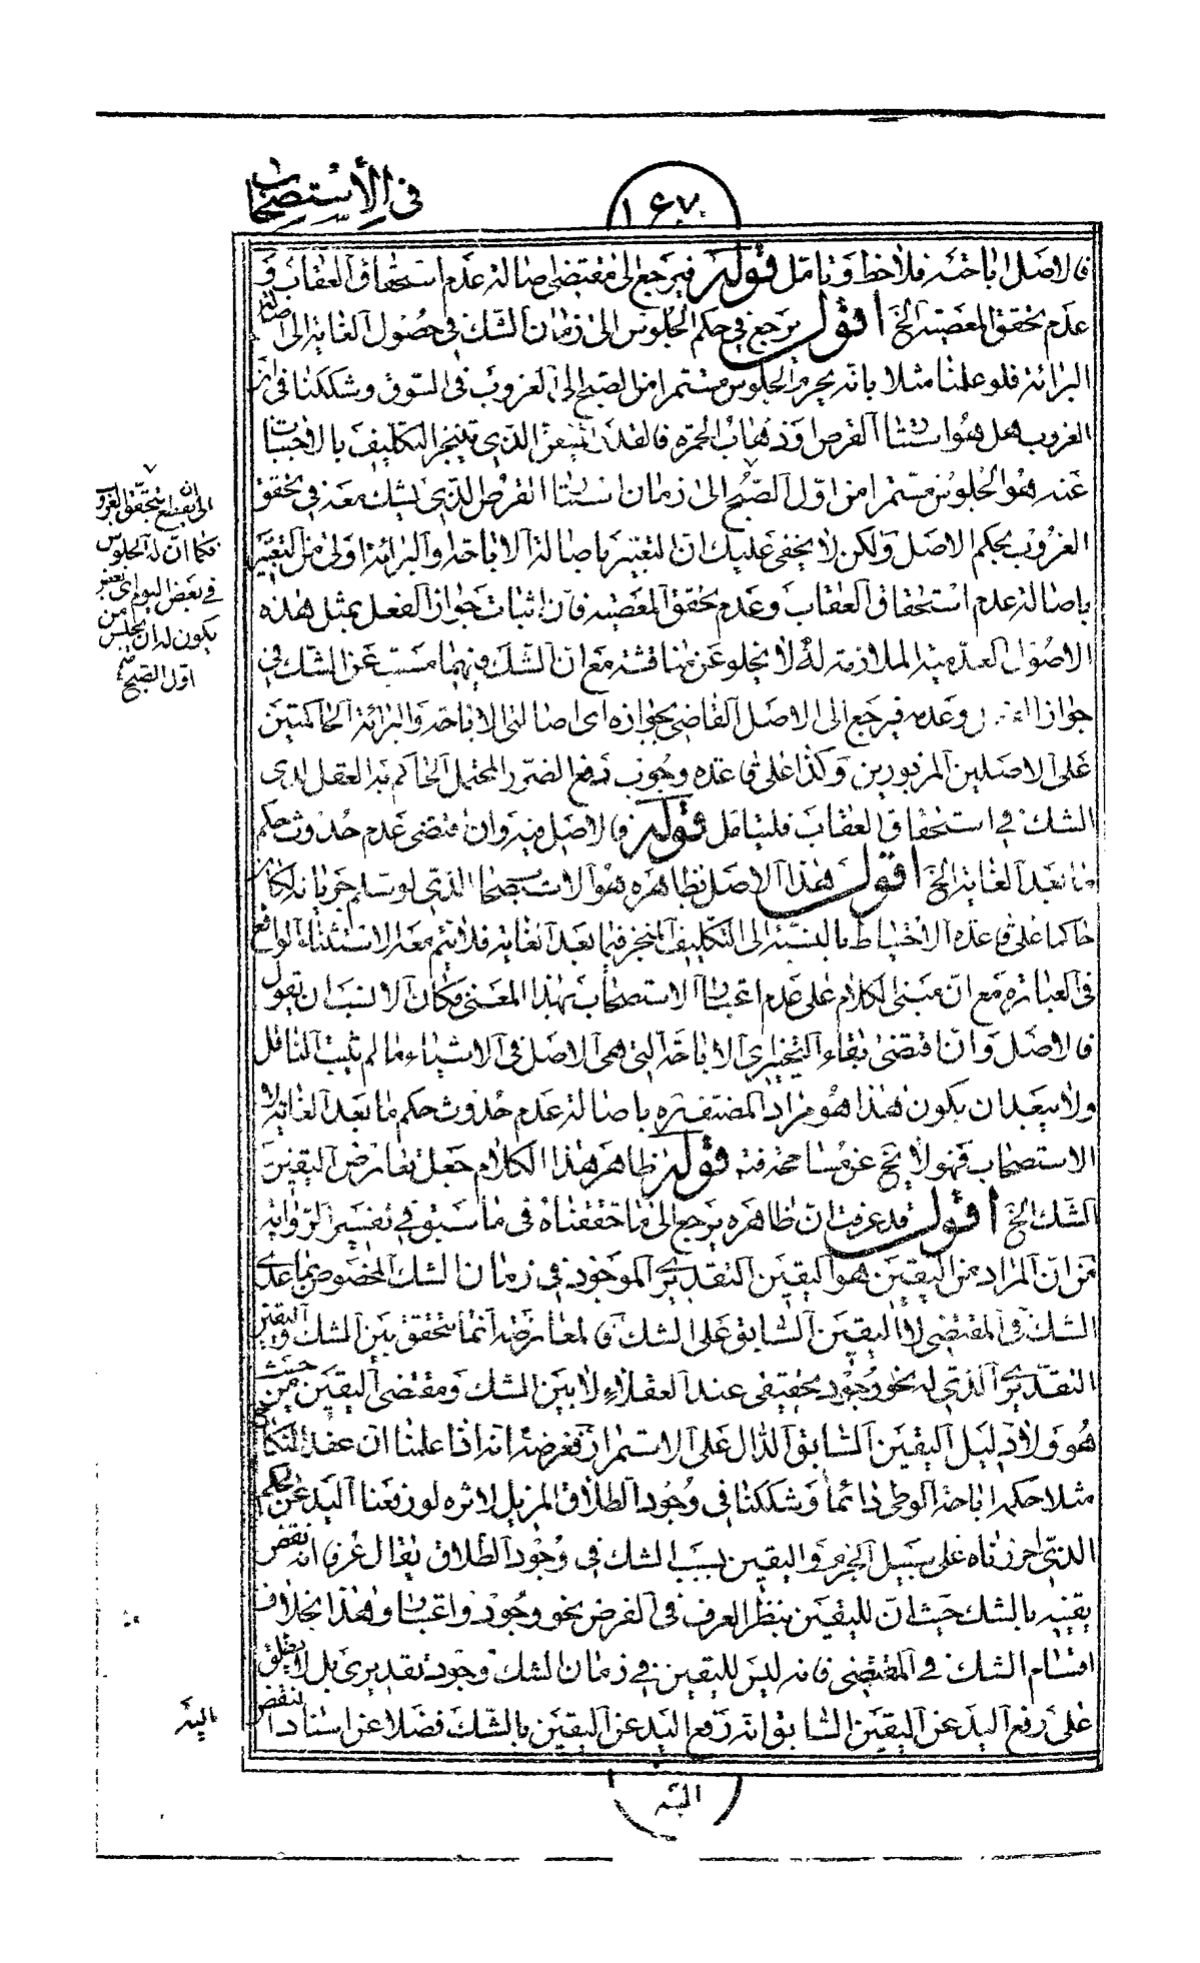 في الاستصحاب
١٦٧
فالاصل اباحته فلاحظ وتامل قوله فيرجع الى مقتضى اصالة عدم استحقاق العقاب و
عدم تحقق المعصية الخ اقول يرجع في حكم الجلوس الى زمان الشك في حصول الغاية الى اصالة
البرائة فلو علمنا مثلا بانه يحرم الجلوس مستمرا من الصبح الى الغروب في السوق وشككنا في ان
الغروب هل هو استتار القرص او ذهاب الحمرة فالقدر المتيقن الذي تنجز التكليف بالاجتناب
عنه هو الجلوس مستمرا من اول الصبح الى زمان استتار القرص الذي يشك معه في تحقق
الغروب بحكم الاصل ولكن لا يخفى عليك ان التعبير باصالة الاباحة والبرائة اولى من التعبير
باصالة عدم استحقاق العقاب وعدم تحقق المعصية فان اثبات جواز الفعل بمثل هذه
الاصول العدمية الملازمة له لا يخلو عن مناقشة مع ان الشك فيهما مسبب عن الشك في
جواز وعدمه فيرجع الى الاصل القاضي بجوازه اى اصالتي الاباحة والبرائة الحاكمتين
على الاصلين المزبورين وكذا على قاعدة وجوب دفع الضرر المحتمل الحاكم به العقل لدى
الشك في استحقاق العقاب فليتامل قوله فالاصل فيه وان اقتضى عدم حدوث حكم
ما بعد الغاية الخ اقول هذا الاصل بظاهره هو الاستصحاب الذي لو سلم جريانه لكان
حاكما على قاعدة الاحتياط بالنسبة الى التكليف المنجز فيما بعد الغاية فلا يتم معه الاستثناء الواقع
في العبارة مع ان مبنى الكلام على عدم اعتبار الاستصحاب بهذا المعنى فكان الانسب ان يقول
فالاصل وان اقتضى بقاء التخيير اى الاباحة التي هي الاصل في الاشياء ما لم يثبت الناقل
ولا يبعد ان يكون هذا هو مراد المصنف ره باصالة عدم حدوث حكم ما بعد الغاية لا
الاستصحاب فهو لا يخ عن مسامحة فتد قوله ظاهر هذا الكلام جعل تعارض اليقين
الشك الخ اقول قد عرفت ان ظاهره يرجع الى ما حققناه في ما سبق في تفسير الرواية
من ان المراد من اليقين هو اليقين التقديرى الموجود في زمان الشك المخصوص بما عدى
الشك في المقتضى لا اليقين السابق على الشك فالمعارضة انما يتحقق بين الشك واليقين
التقديرى الذي له نحو وجود حقيقى عند العقلاء لا بين الشك ومقتضى اليقين من حيث
هو ولا دليل اليقين السابق الدال على الاستمرار فغرضه انه اذا علمنا ان عقد النكاح
مثلا حكمه اباحة الوطى دائما وشككنا في وجود الطلاق المزيل لاثره لو رفعنا اليد عن الحكم
الذي احرزناه على سبيل الجزم واليقين بسبب الشك في وجود الطلاق يقال عرفا انه نقض
يقينه بالشك حيث ان لليقين بنظر العرف في الفرض نحو وجود واعتبار وهذا بخلاف
اقسام الشك في المقتضى فانه ليس لليقين في زمان الشك وجود تقديرى بل لا يطلق
على رفع اليد عن اليقين السابق انه رفع اليد عن اليقين بالشك فضلا عن اسناد النقض
اليه
الى ان يتحقق الغروب
فكما ان له الجلوس
في بعض اليوم
يكون له ان يجلس من
اول الصبح
اليه